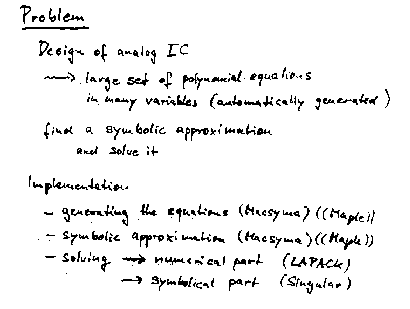 Problem
Design of analog IC
⟶ large set of polynomial equations
in many variables (automatically generated)
find a symbolic approximation
and solve it
Implementation
- generating the equations (Macsyma) ((Maple))
- symbolic approximation (Macsyma) ((Maple))
- solving → numerical part (LAPACK)
→ symbolical part (Singular)